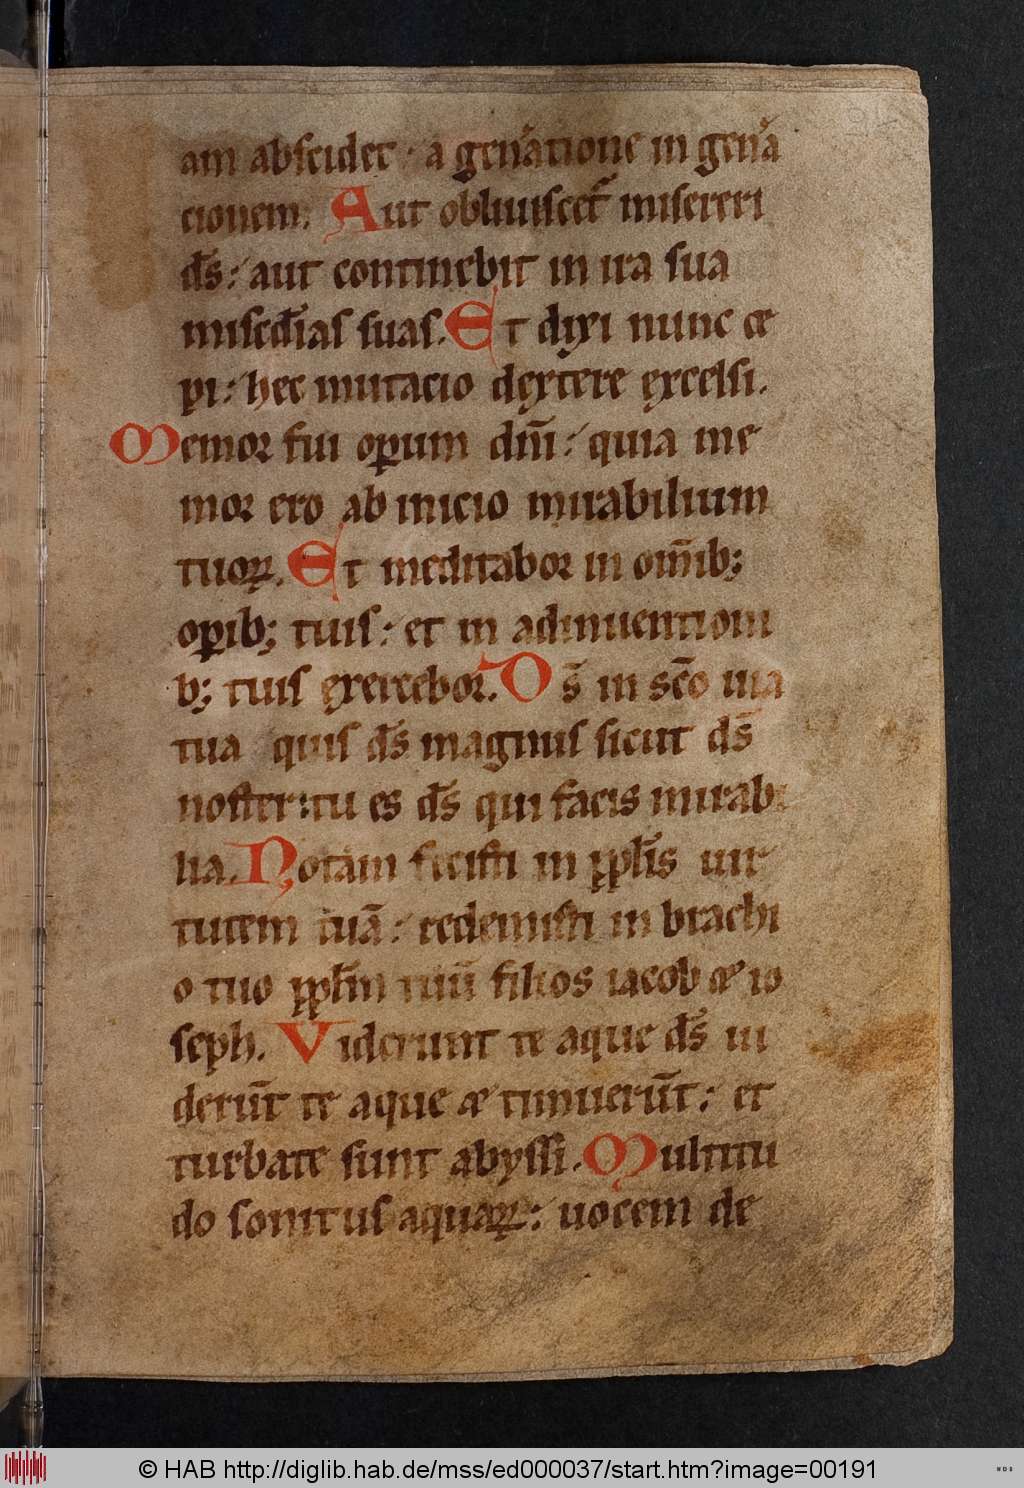 am abscidet · a gen͛atione in gen͛a
cionem. Aut obliuiscet᷑ misereri
ds̄: aut continebit in ira sua
misc̄dias suas. Et dixi nunc ce
pi: hec mutacio dextere excelsi.
Memor fui oꝑum dn̄i: quia me
mor ero ab inicio mirabilium
tuoꝝ. Et meditabor in om̄ib;
oꝑib; tuis: et in adinuentioni
b; tuis exercebor. Ds̄ in sc̄o uia
tua quis ds̄ magnus sicut ds̄
noster: tu es ds̄ qui facis mirabi
lia. Notam fecisti in ppl̄is uir
tutem tuā: redemisti in brachi
o tuo ppl̄m tuū filios iacob et io
seph. Viderunt te aque ds̄ ui
derūt te aque et timuerūt: et
turbate sunt abyssi. Multitu
do sonitus aquaꝝ: uocem de
© HAB http://diglib.hab.de/mss/ed000037/start.htm?image=00191